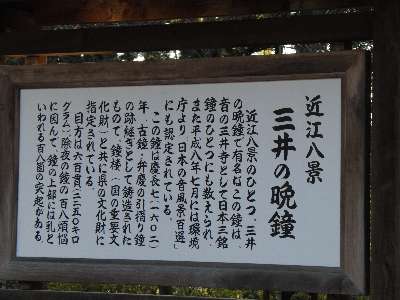 近江八景
三井の晩鐘
近江八景のひとつ、三井
の晩鐘で有名なこの鐘は、
音の三井寺として日本三銘
鐘のひとつにも数えられ、
また平成八年七月には環境
庁より「日本の音風景百選」
にも認定されている。
この鐘は慶長七（一六〇二）
年、古鐘・弁慶の引摺り鐘
の跡継ぎとして鋳造された
もので、鐘楼（国の重要文
化財）と共に県の文化財に
指定されている。
目方は六百貫（二二五〇キロ
グラム）、除夜の鐘の百八煩悩
に因んで、鐘の上部には乳と
いわれる百八箇の突起がある。